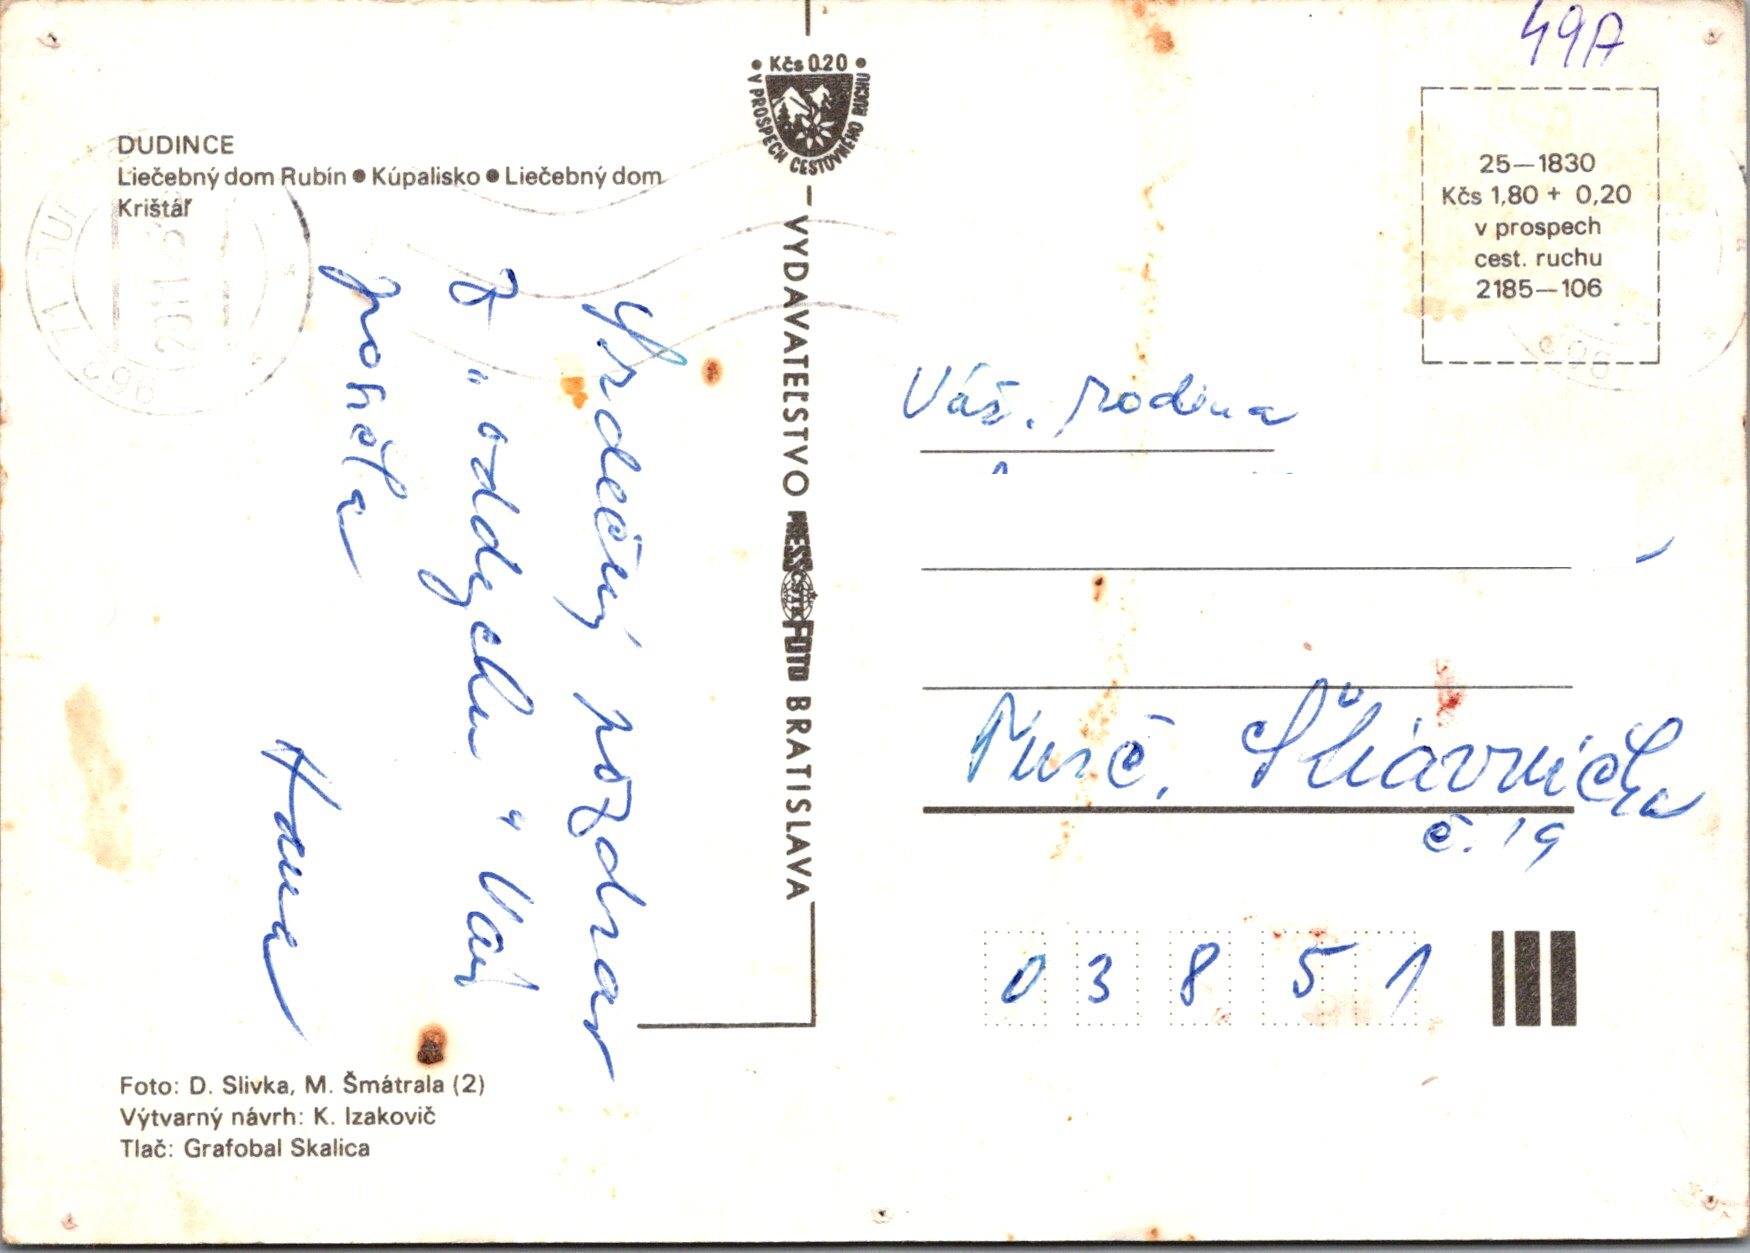 49A
Kčs 0.20
V PROSPECH CESTOVNÉHO RUCHU
DUDINCE
Liečebný dom Rubín ● Kúpalisko ● Liečebný dom
Krištáľ
25—1830
Kčs 1,80 + 0,20
v prospech
cest. ruchu
2185—106
VYDAVATEĽSTVO PRESSFOTO BRATISLAVA
Srdečný pozdrav
z "oddychu" Vám
posiela
Hana
Váž. rodina
Turč. Štiavnička
č. 19
038 51
Foto: D. Slivka, M. Šmátrala (2)
Výtvarný návrh: K. Izakovič
Tlač: Grafobal Skalica